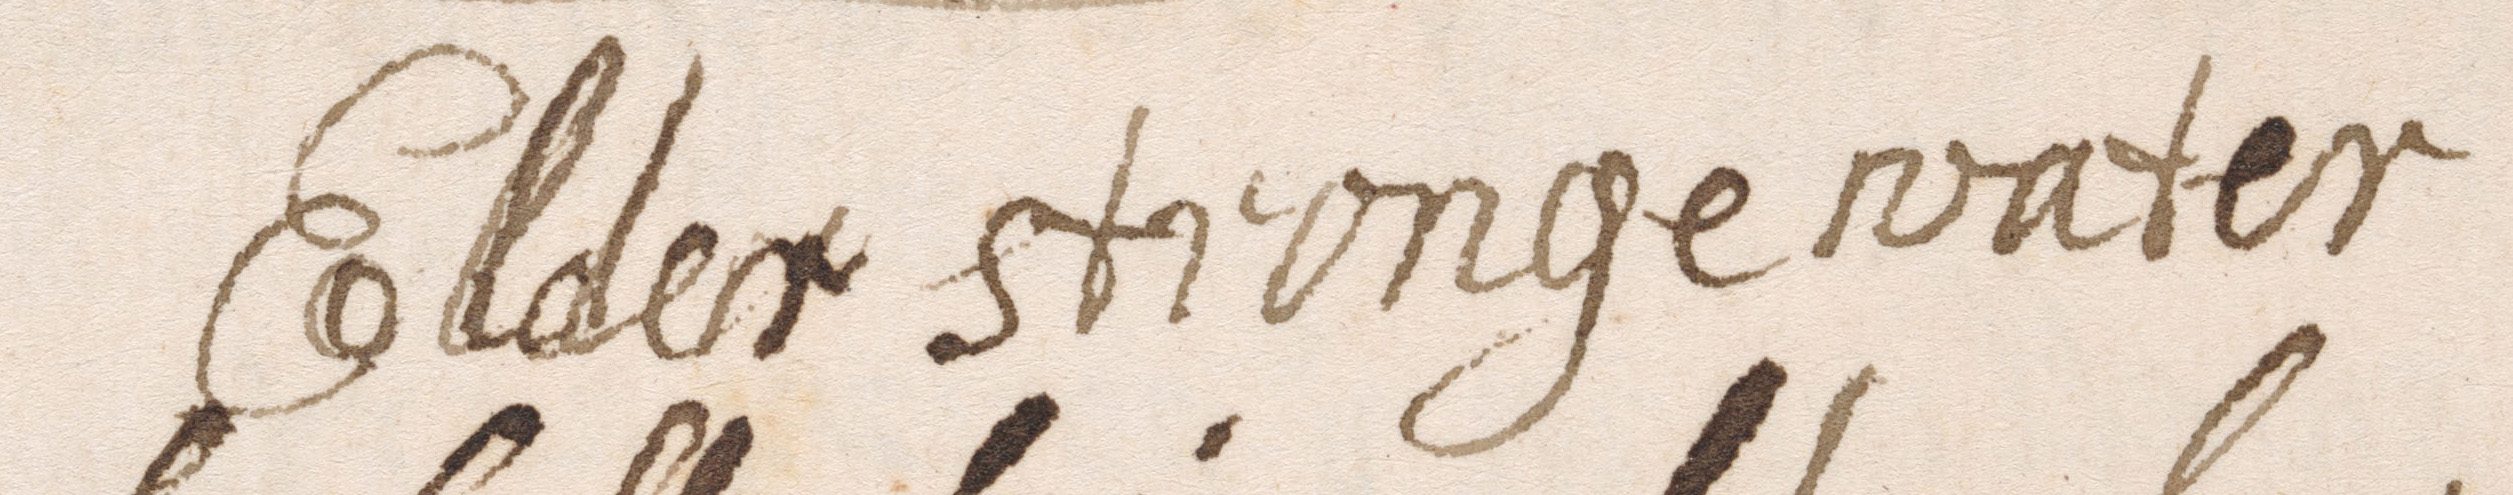 Elder stronge water